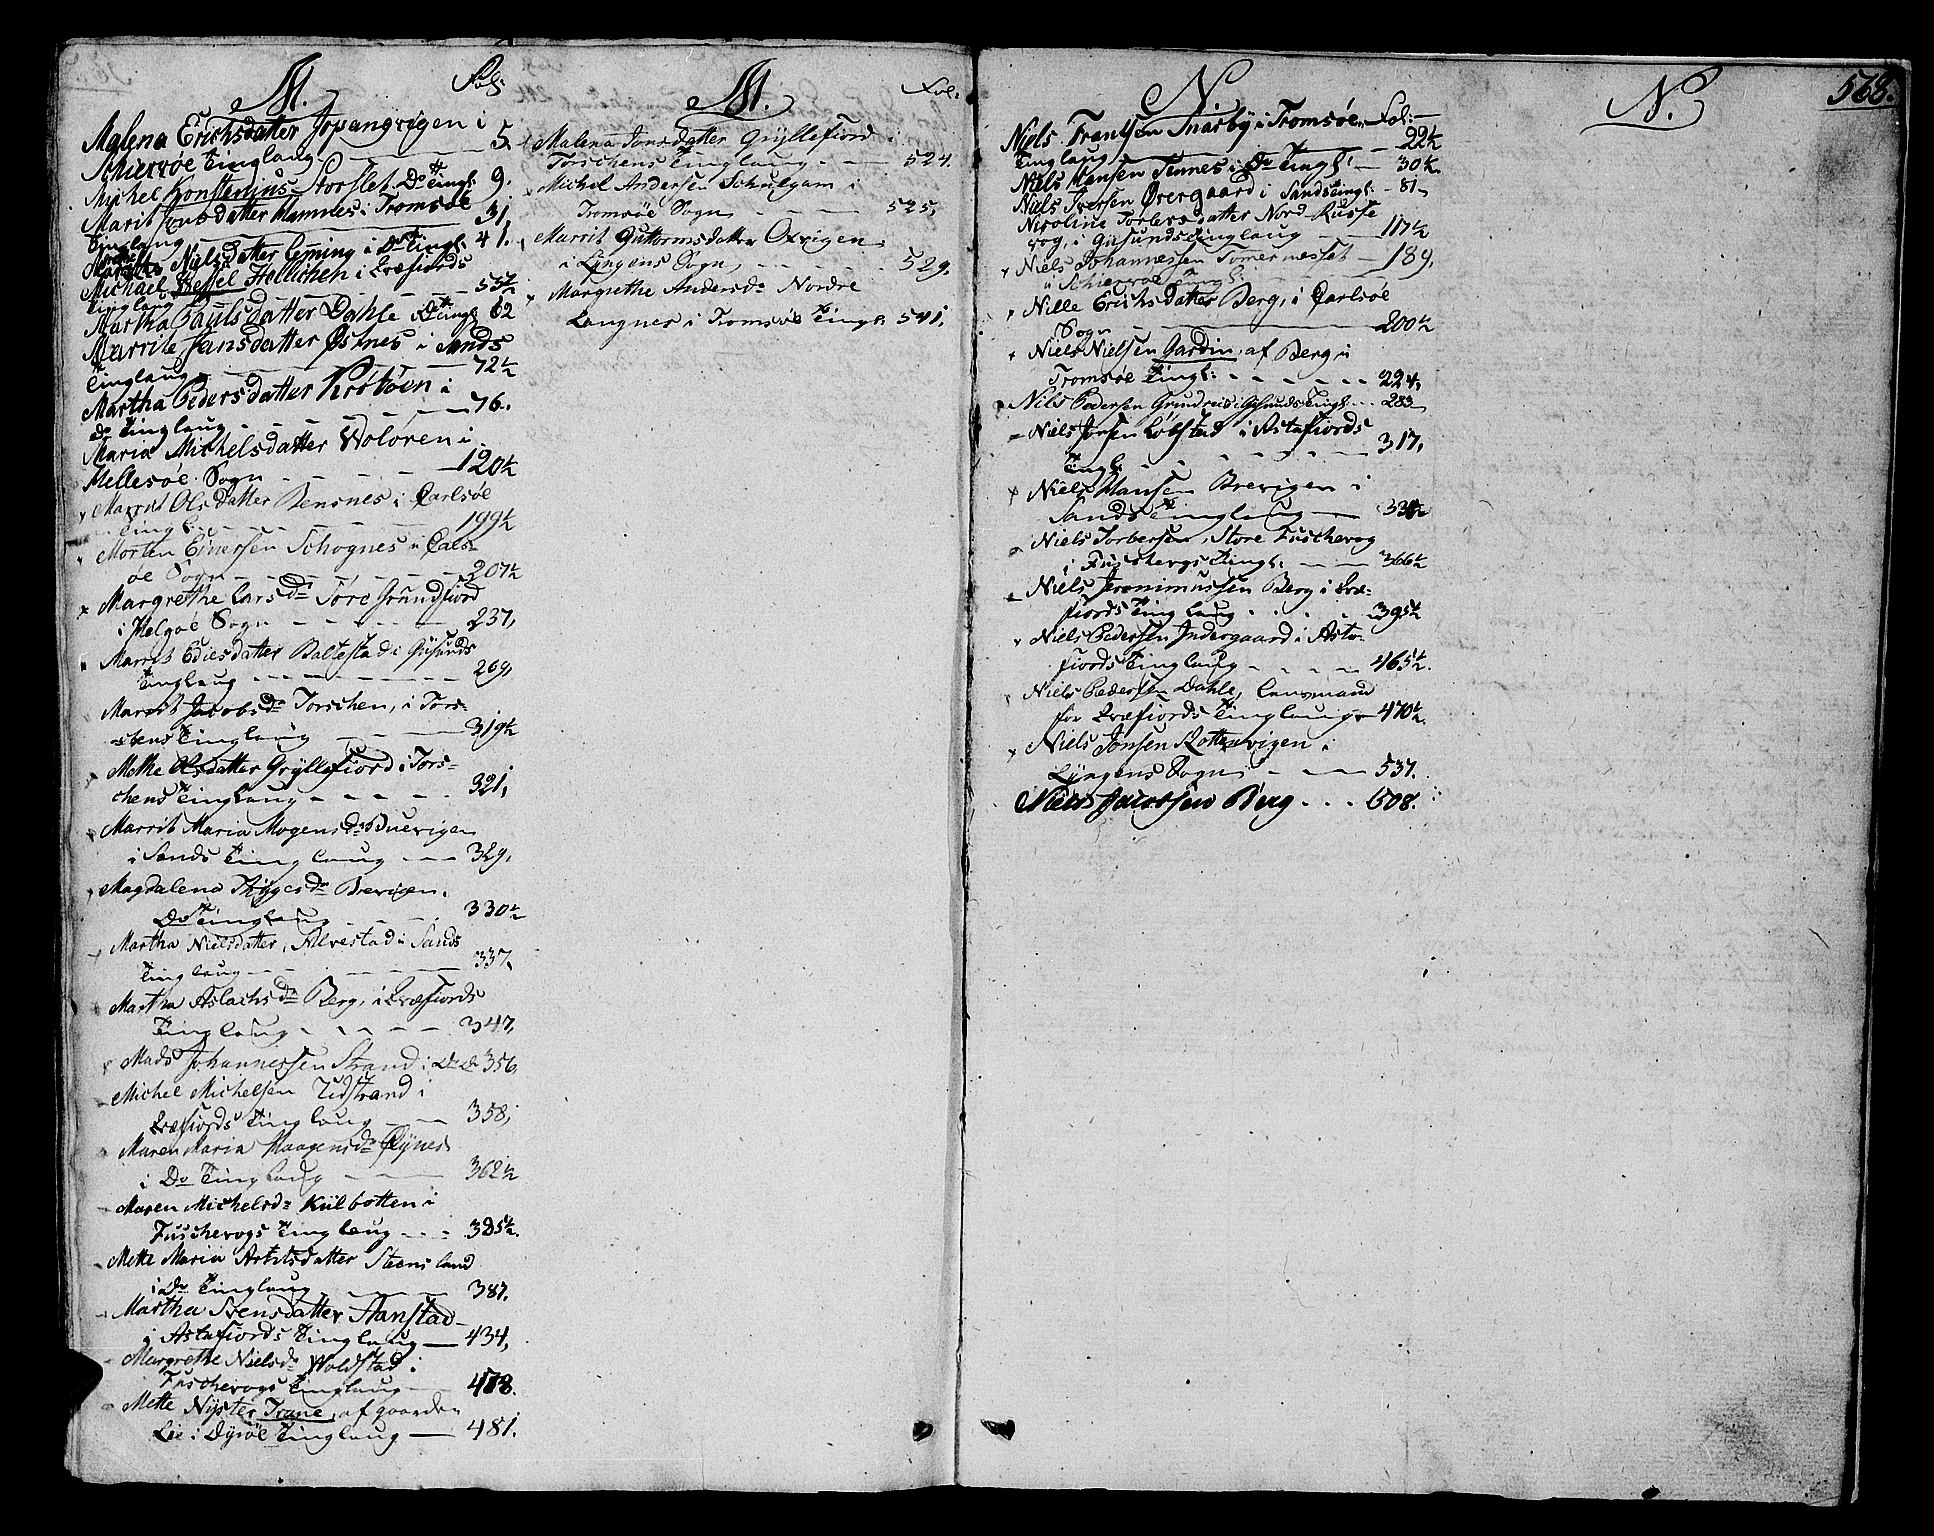 M. Fol:
Malena Erichsdatter Jopangvigen i
Schiervøe Tinglaug - - - 5.
Michel Constenius Storslet Do Tingl: 9.
Marit Jonsdatter Mannes i Tromsøe
Tinglaug - - - 31,
Marthe Nielsdatter Leming i Do Tingl: 41.
Michael Hessel Hellichen i Evæfiords
Tinglaug - - - 55½
Martha Paulsdatter Dahle Do Tingl 62
Marrite Hansdatter Østnes i Sands
Tinglaug - - - 72½
Martha Pedersdatter Krøtøen i
do Tinglaug - - - 76.
Maria Michelsdatter Woløren i
Hellesøe Sogn - - - 120½
Marrit Olsdatter Bensnes i Carlsøe
Tingl: - - - 199½
Morten Ejnersen Schognes i Cals-
øe Sogn - - - 207½
Margrethe Larsda Tøre Grundfiord
i Helgøe Sogn - - - 237,
Marrit Edisdatter Baltestad i Gisunds
Tinglaug - - - 269,
Marrit Jacobsda Torschen, i Tors-
chens Tinglaug - - - 319½
Mette Olsdatter Gryllefiord i Tors-
chens Tinglaug - - - 321,
Marrit Maria Mogensda Buevigen
i Sands Tinglaug - - - 329,
Magdalena Thygesda Brevigen.
Do Tinglaug - - - 330½
Martha Nielsdatter, Alvestad i Sands
Tinglaug - - - 337,
Martha Aslachsda Berg, i Evæfiords
Tinglaug - - - 347,
Mads Johannessen Strand i Do Do 356,
Michel Michelsen Tidstrand i
Evæfiords Tinglaug - - - 358,
Maren Maria Haagensda Øynes
i Do Tinglaug - - - 362½
Maren Michelsda Kulbotten i
Fuschevogs Tinglaug - - - 385½.
Mette Maria Arntsdatter Steensland
i Do Tinglaug - - - 387.
Martha Svensdatter Aanstad
i Astafiords Tinglaug - 434,
Margrethe Nielsda Woldstad i
Fuschevogs Tinglaug - 478.
Mette Nyster Trane, af gaarden
Lie i Dyrøe Tinglaug - 481.
M. Fol:
Malena Jonsdatter Gryllefiord i
Torschens Tinglaug - - - 524.
Michel Andersen Schulgam i
Tromsøe Sogn - - - 525,
Marrit Guttormsdatter Oxvigen
i Lyngens Sogn, - - - 529.
Margrethe Andersda Nordre
Langnes i Tromsøe Tingl: 541.
N.
Niels Frantsen Snarby i Tromsøe Fol:
Tinglaug - - - 22½
Niels Hansen Tennes i Do Tingl: - 30½
Niels Iversen Øvergaard i Sands Tingl: - 81
Nicolina Torbersdatter Nord-Russe
vog, i Gisunds Tinglaug - 117½
Niels Johannessen Tomernesset - 189.
i Schiervøe Tingl:
Nille Erichsdatter Berg, i Carlsøe
Sogn - - - 200½
Niels Nielsen Gardin, af Berg i
Tromsøe Tingl: - - - 224,
Nils Pedersen Grundreis i Gisunds Tingl: . . . 283
Niels Jonsen Løbstad i Astafiords
Tingl: - - - 317,
Niels Hansen Brevigen i
Sands Tinglaug - - - 33½
Niels Torbersen, Store Fuschevog
i Fuschevogs Tingl: - - - 366½
Niels Jeronimussen Berg i Evæ-
fiords Tinglaug . . . 395½
Niels Pedersen Indergaard i Asta-
fiords Tinglaug - - - 465½.
Niels Pedersen Dahle, Lensmand
for Evæfiords Tinglaug 470½.
Niels Jonsen Rottenvigen i
Lyngens Sogn - - - 537.
Niels Jacobsen Berg . . . 508.
N. 568.